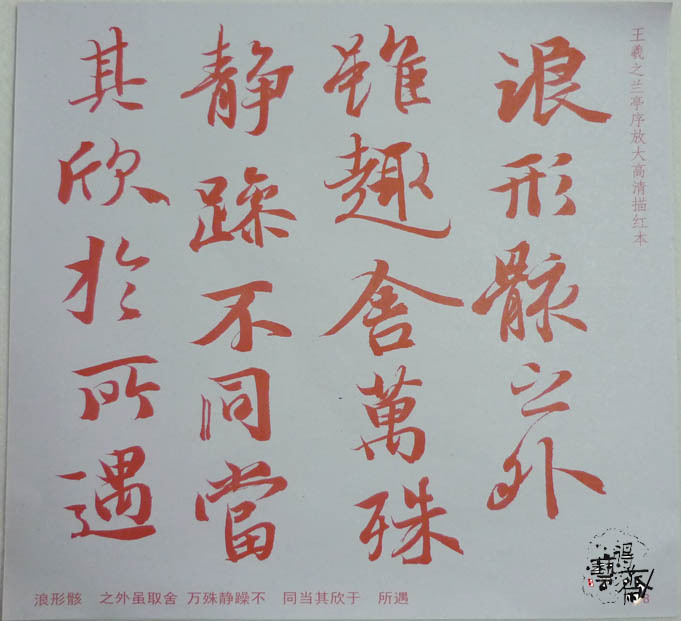 王羲之兰亭序放大高清描红本
浪形骸之外
雖趣舍萬殊
静躁不同當
其欣於所遇
浪形骸 之外虽取舍 万殊静躁不 同当其欣于 所遇